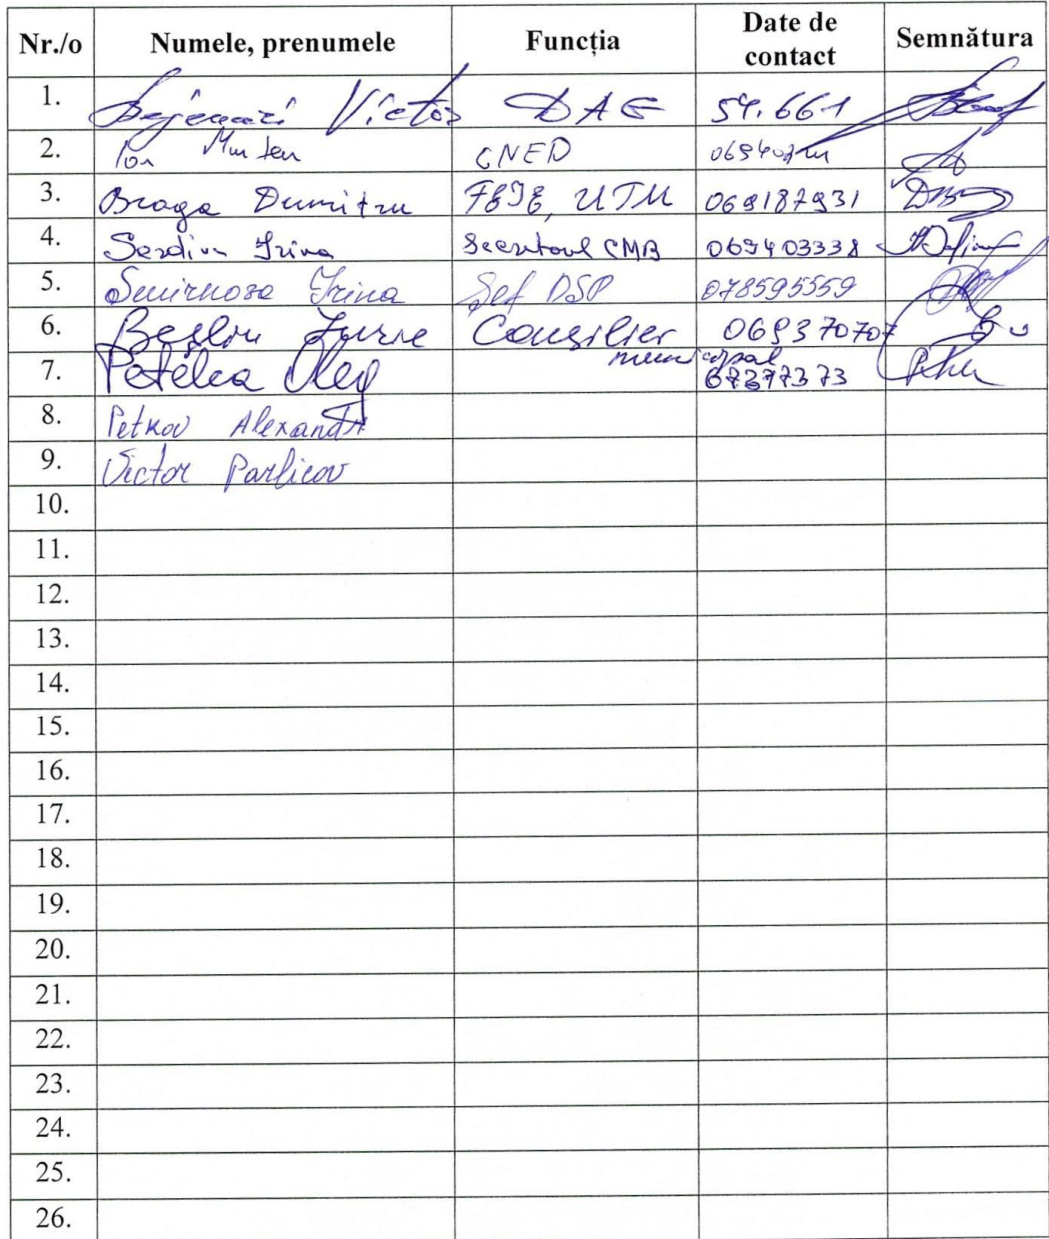 Nr./o Numele, prenumele Funcția Date de contact Semnătura
1. Bejenari Victor DAE 54.661
2. Ion Munten CNED
3. Braga Dumitru FEIE, UTM 069187931
4. Serdiuc Irina Secretarul CMB 069403338
5. Smirnova Irina Șef DSP 078595559
6. Beșliu Iurie Consilier municipal 069370707
7. Petelca Oleg 67377373
8. Petkov Alexandr
9. Victor Parlicov
10.
11.
12.
13.
14.
15.
16.
17.
18.
19.
20.
21.
22.
23.
24.
25.
26.